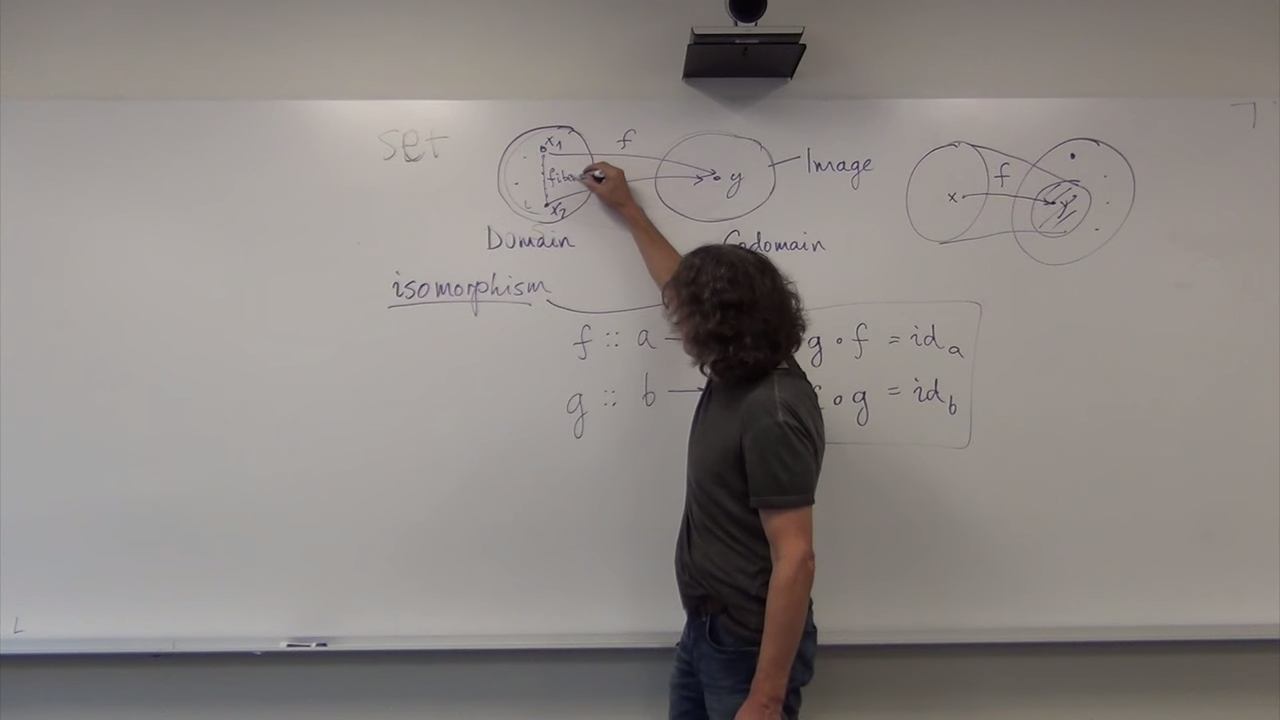 set
x1
f
fiber
y
Image
x2
x
f
y
Domain
Codomain
isomorphism
f :: a →
g ∘ f = id_a
g :: b →
∘ g = id_b